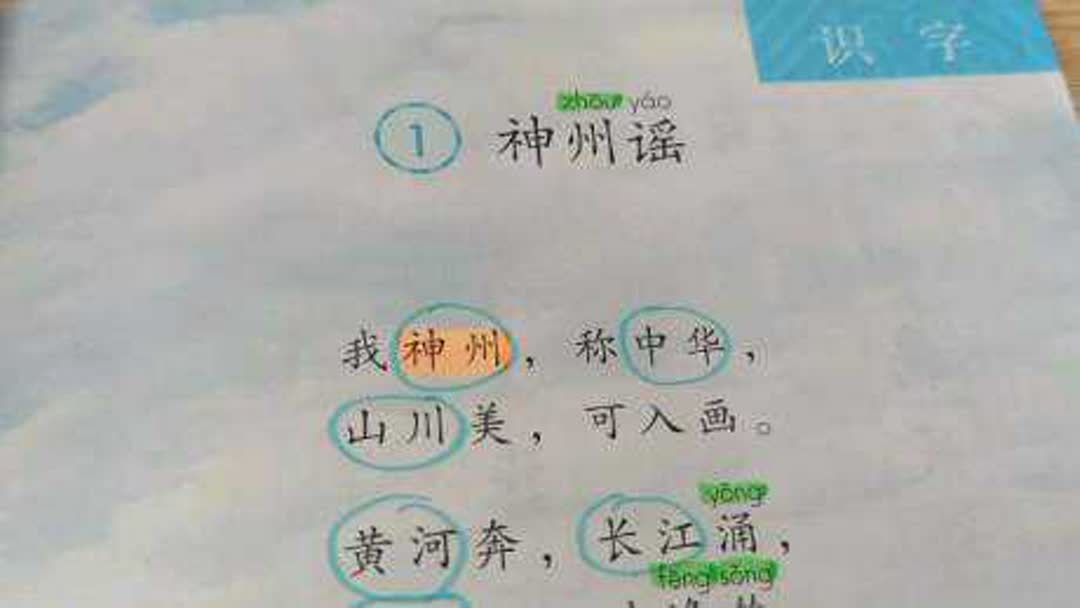 识字
zhōu yáo
1 神州谣
我神州，称中华，
山川美，可入画。
yǒng
黄河奔，长江涌，
fēng sǒng